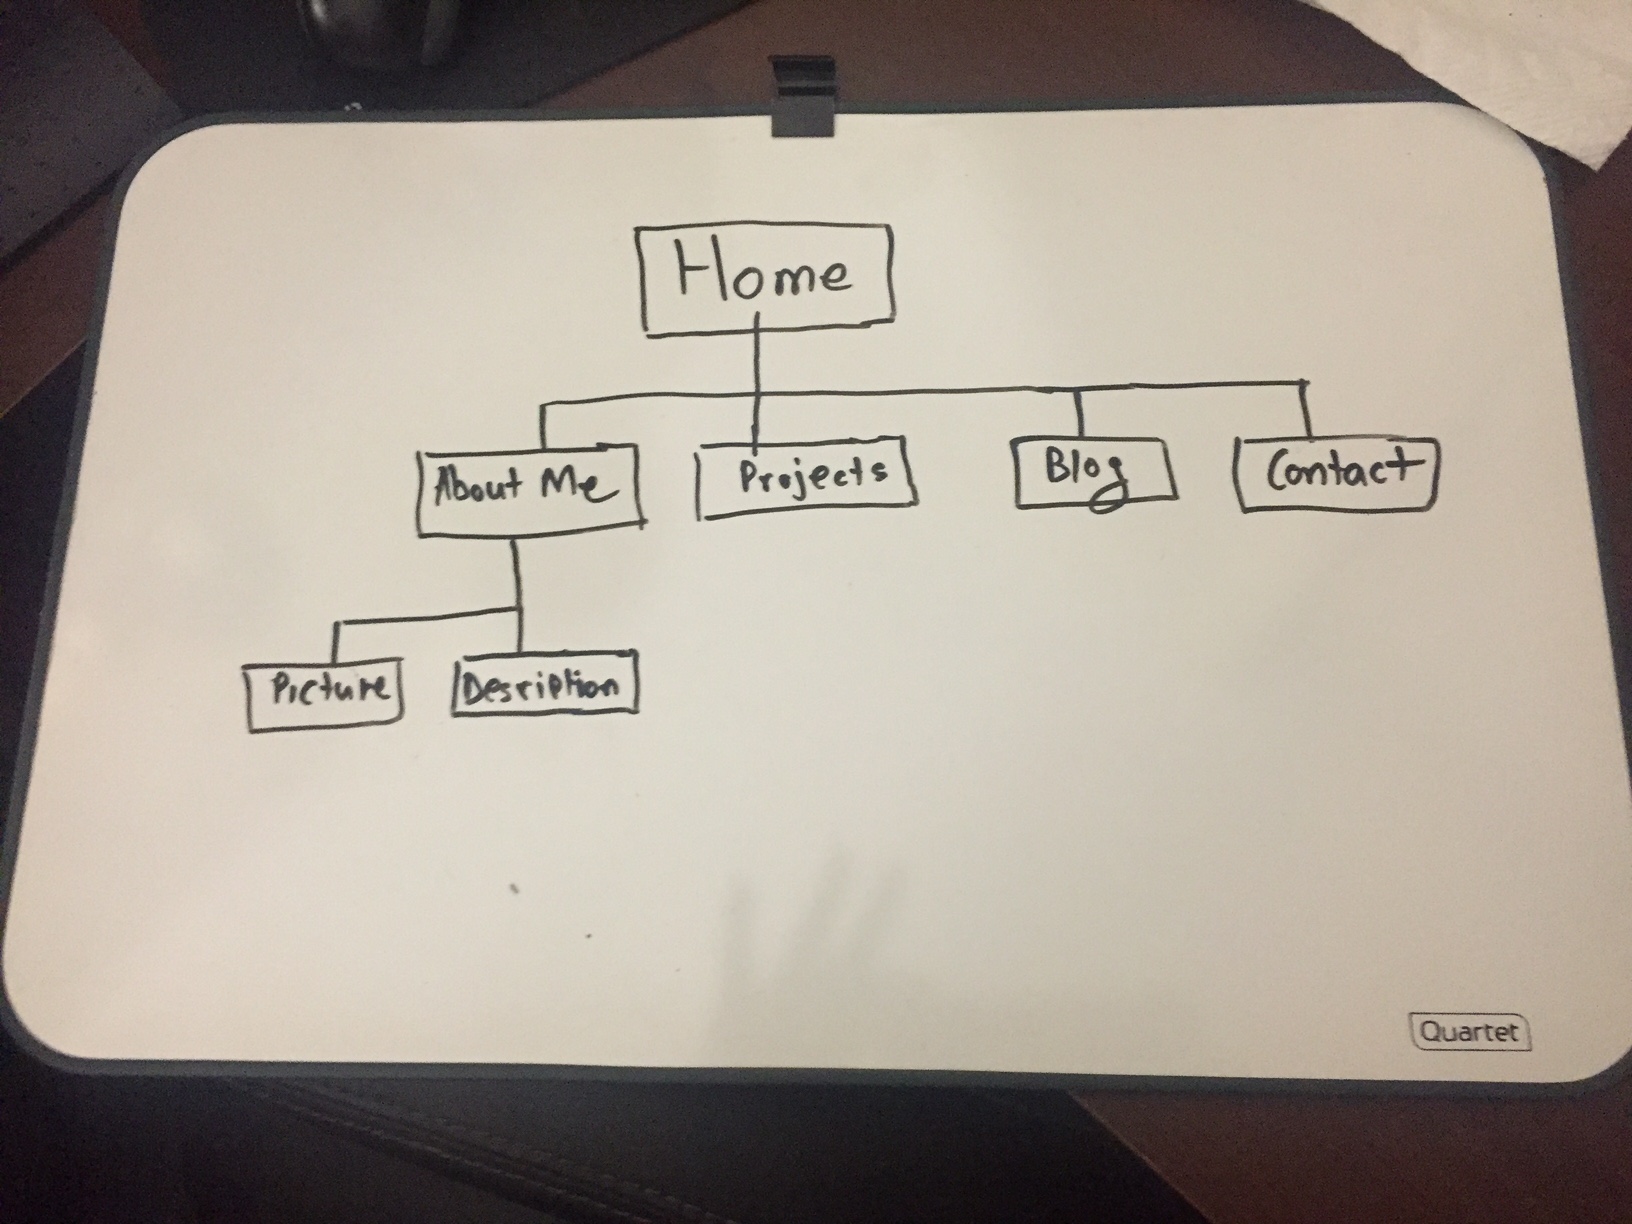 Home
About Me
Projects
Blog
Contact
Picture
Desription
Quartet